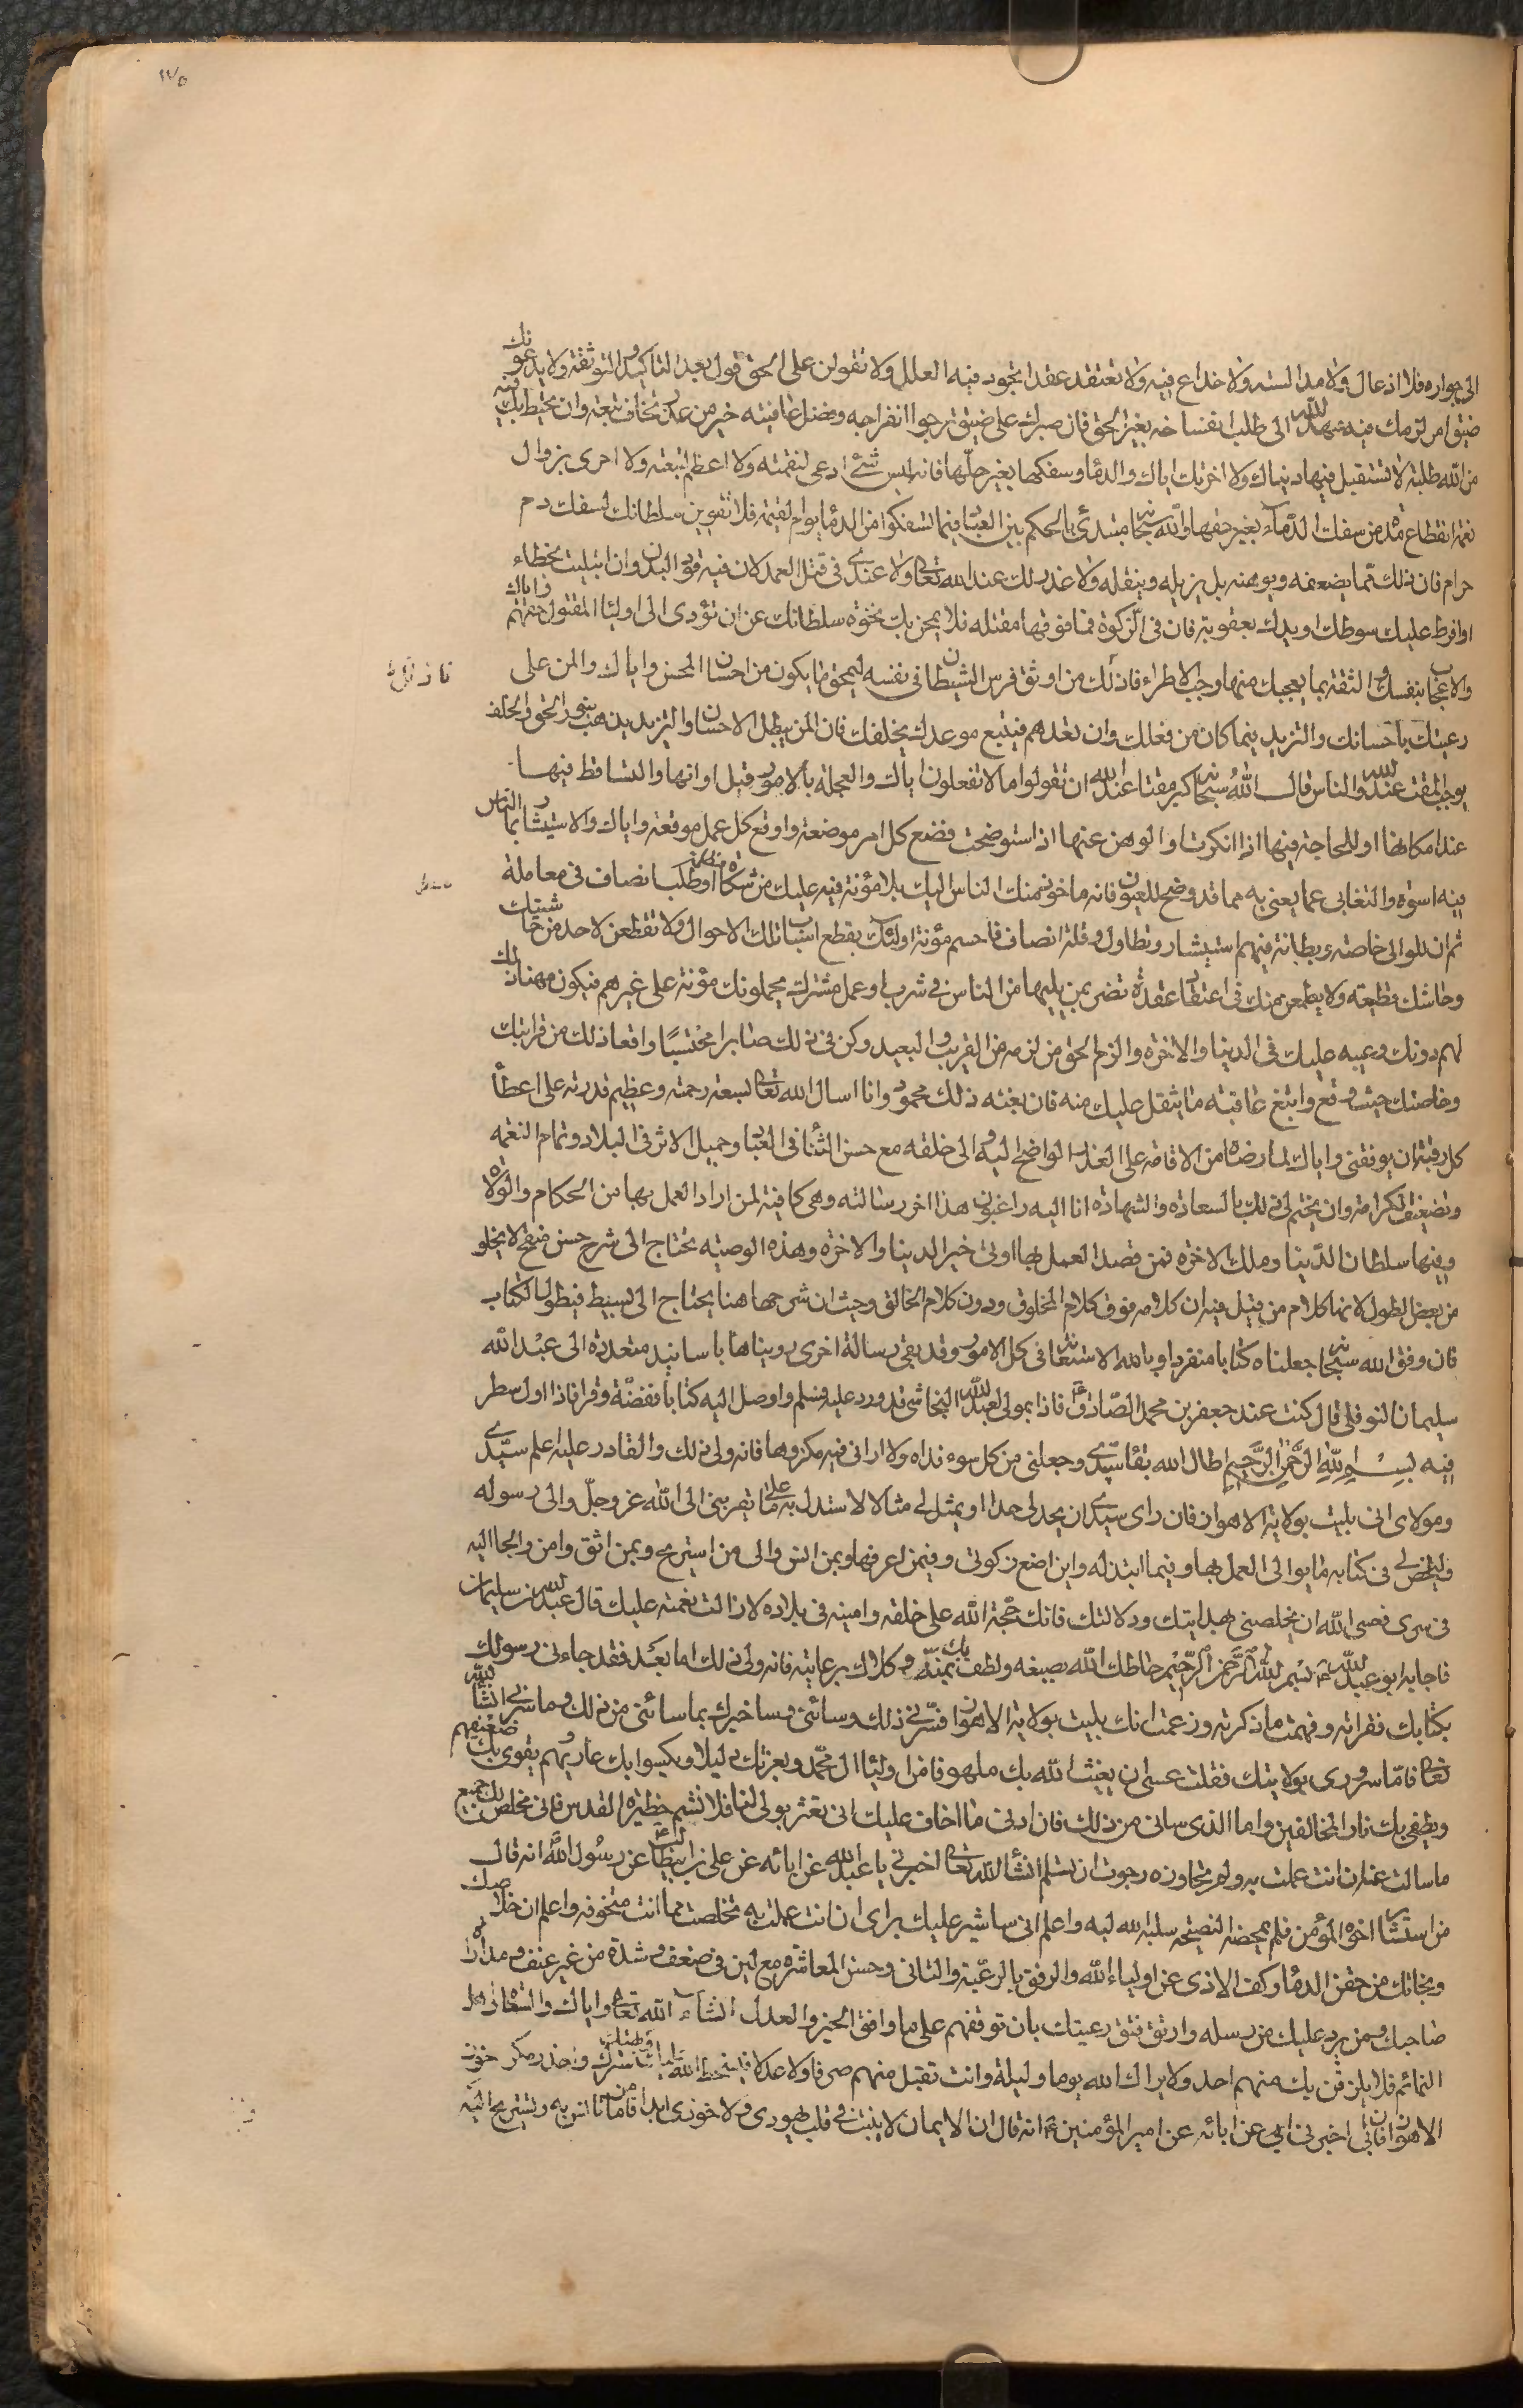 ١٧٥
الى جواره فلا ادغال ولا مدالسة ولا خداع فيه ولا تعتقد عقدا تجوز فيه العلل ولا تقولن على لحن قول بعد التاكيد والتوثقة ولا يدعونك
ضيق امر لزمك فيه عهد الله الى طلب انفساخه بغير الحق فان صبرك على ضيق ترجوا انفراجه وفضل عاقبته خير من غدر تخاف تبعته وان تحيط بك فيه
من الله طلبة لا تستقبل فيها دنياك ولا اخرتك اياك والدماء وسفكها بغير حلها فانه ليس شئ ادعى لنقمته ولا اعظم لتبعته ولا احرى بزوال
نعمة انقطاع مدة من سفك الدماء بغير حقها والله سبحانه مبتدئ بالحكم بين العباد فيما تسفكوا من الدماء يوم القيمة فلا تقوين سلطانك بسفك دم
حرام فان ذلك مما يضعفه ويوهنه بل يزيله وينقله ولا عذر لك عند الله تعالى ولا عندى فى قتل العمد لان فيه قود البدن وان ابتليت بخطاء
او افرط عليك سوطك او يدك بعقوبة فان فى الزكوة فما فوقها مقتله فلا يطمحن بك نخوة سلطانك عن ان تؤدى الى اولياء المقتول حقهم واياك
والاعجاب بنفسك والثقة بما يعجبك منها وحب الاطراء فان ذلك من اوثق فرص الشيطان فى نفسه ليمحق ما يكون من احسان المحسن واياك والمن على
رعيتك باحسانك والتزيد فيما كان من فعلك وان تعدهم فيتبع موعدك بخلفك فان المن يبطل الاحسان والتزيد يذهب بنور الحق والخلف
يوجب المقت عند الله والناس قال الله سبحانه كبر مقتا عند الله ان تقولوا ما لا تفعلون اياك والعجلة بالامور قبل اوانها والتساقط فيها
عند امكانها او اللجاجة فيها اذا انكرت او الوهن عنها اذا استوضحت فضع كل امر موضعه واوقع كل عمل موقعه واياك والاستيثار بما الناس
فيه اسوة والتغابى عما يعنى به مما قد وضح للعيون فانه ماخوذ منك الناس اليك بلا مؤنة فيه عليك من شكاة مظلمة او طلب انصاف فى معاملة
ثم ان للوالى خاصة وبطانة فيهم استيثار وتطاول وقلة انصاف فاحسم مؤنة اولئك بقطع اسباب تلك الاحوال ولا تقطعن لاحد من حاشيتك
وحاشتك قطيعة ولا يطمعن منك فى اعتقاد عقدة تضر بمن يليها من الناس فى شرب او عمل مشترك يحملونك مؤنة على غيرهم فيكون مهنا ذلك
لهم دونك وعيبه عليك فى الدينا والاخرة والزم الحق من لزمه من القريب والبعيد وكن فى ذلك صابرا محتسبا واقعا ذلك من قرابتك
وخاصتك حيث وقع وابتغ عاقبته ما يثقل عليك منه فان مغبة ذلك محمود وانا اسال الله تعالى بسعة رحمته وعظيم قدرته على اعطاء
كل رغبة ان يوفقنى واياك لما رضاه من الاقامة على العذر الواضح اليه والى خلقه مع حسن الثناء فى العباد وجميل الاثر فى البلاد وتمام النعمة
وتضعيف الكرامة وان يختم لى ولك بالسعادة والشهادة انا اليه راغبون هذا اخر رسالته وهى كافية لمن اراد العمل بها من الحكام والولاة
وفيها سلطان الدينا وملك الاخرة فمن قصد العمل بها اوتى خير الدينا والاخرة وهذه الوصية يحتاج الى شرح حسن منقح لا يخلو
من بعض الطول لانها كلام من قيل فيه ان كلامه فوق كلام المخلوق ودون كلام الخالق وحيث ان شرحها هنا يحتاج الى بسيط فيطول الكتاب
فان وفق الله سبحانه جعلناه كتابا منفردا وبالله الاستعانة فى كل الامور وقد بقى رسالة اخرى رويناها باسانيد متعددة الى عبد الله
سليمان النوفلى قال كنت عند جعفر بن محمد الصادق ع فاذا بمولى لعبد الله النجاشى قد ورد عليه فسلم واوصل اليه كتابا ففضه وقراه فاذا اول سطر
فيه بسم الله الرحمن الرحيم اطال الله بقاء سيدى وجعلنى من كل سوء فداه ولا ارانى فيه مكروها فانه ولى ذلك والقادر عليه اعلم سيدى
ومولاى انى بليت بولاية الاهواز فان راى سيدى ان يحد لى حدا او يمثل لى مثالا لاستدل به على ما يقربنى الى الله عز وجل والى رسوله
ويلخص لى فى كتابه ما يوالى العمل بها وفيما ابتذله واين اضع زكوتى وفيمن اعرفها وبمن انس والى من استريح وبمن اثق وامن والجا اليه
فى سرى فعسى الله ان يخلصنى بهدايتك ودلالتك فانك حجة الله على خلقه وامينه فى بلاده لا زالت نعمته عليك قال عبد الله بن سليمان
فاجابه ابو عبد الله ع بسم الله الرحمن الرحيم حاطك الله بصنعه ولطف بك بمنه وكلاك برعايته فانه ولى ذلك اما بعد فقد جاءنى رسولك
بكتابك فقراته وفهمت ما ذكرته وزعمت انك بليت بولاية الاهواز فسرنى ذلك وسائنى وساخبرك بما سائنى من ذلك وما سرنى انشاء الله
تعالى فاما سرورى بولايتك فقلت عسى ان يغيث الله بك ملهوفا من اولياء ال محمد ويعز بك ذليلا ويكسوا بك عاريهم يقوى بك ضعيفهم
ويطفى بك نار المخالفين واما الذى سائنى من ذلك فان ادنى ما اخاف عليك ان تعثر بولى لنا فلا تشم حظيرة القدس فانى مخلص لك جميع
ما سالت عنه ان انت عملت به ولم تجاوزه رجوت ان تسلم انشاء الله تعالى اخبرنى يا عبد الله عن ابائه عن على بن ابيطالب ع عن رسول الله انه قال
من استشاره اخوه المؤمن فلم يمحضه النصيحة سلبه الله لبه واعلم انى ساشير عليك براى ان انت عملت به تخلصت مما انت متخوفه واعلم ان خلاصك
ونجاتك من حقن الدماء وكف الاذى عن اولياء الله والرفق بالرعية والتانى وحسن المعاشرة مع لين فى ضعف وشدة من غير عنف ومداراة
صاحبك ومن يرد عليك من رسله وارتق فتق رعيتك بان توقفهم على ما وافق الخير والعدل انشاء الله تعالى واياك والسعاة واهل
النمائم فلا يلزقن بك منهم احد ولا يراك الله يوما وليلة وانت تقبل منهم صرفا ولا عدلا فيسخط الله عليك ويهتك سترك واحذر مكر خوز
الاهواز فان ابى اخبرنى ابى عن ابائه عن امير المؤمنين ع انه قال ان الايمان لا ينبت فى قلب يهودى ولا خوزى ابدا فاما من تانس به وتستريح اليه